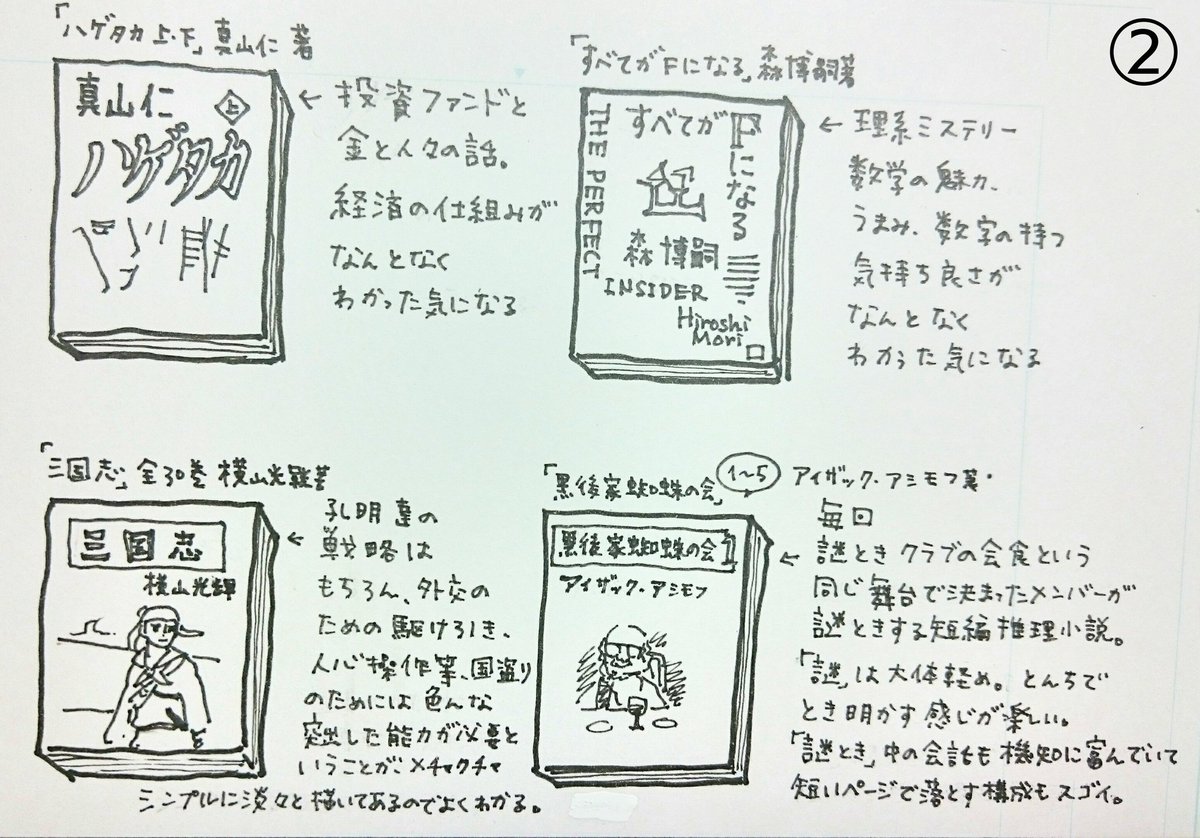 ②
「ハゲタカ 上・下」真山仁 著
真山仁 上
ハゲタカ
← 投資ファンドと
金と人々の話。
経済の仕組みが
なんとなく
わかった気になる
「すべてがFになる」森博嗣著
すべてが
Fになる
THE PERFECT
森 博嗣
INSIDER
Hiroshi
Mori
← 理系ミステリー
数学の魅力、
うまみ、数字の持つ
気持ち良さが
なんとなく
わかった気になる
「三国志」全30巻 横山光輝著
三国志
横山光輝
← 孔明達の
戦略は
もちろん、外交の
ための駆けひき、
人心操作等、国盗り
のためには色んな
突出した能力が必要と
いうことがメチャクチャ
シンプルに淡々と描いてあるのでよくわかる。
「黒後家蜘蛛の会」 1〜5 アイザック・アシモフ著・
黒後家蜘蛛の会1
アイザック・アシモフ
毎回
← 謎ときクラブの会食という
同じ舞台で決まったメンバーが
謎ときする短編推理小説。
「謎」は大体軽め。とんちで
とき明かす感じが楽しい。
「謎とき」中の会話も機知に富んでいて
短いページで落とす構成もスゴイ。